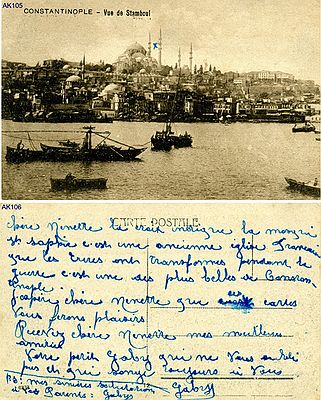 AK105
CONSTANTINOPLE - Vue de Stamboul
AK106
CARTE POSTALE
Chère Ninette la croix indique la
St Saphie c'est une ancienne église
que les Turcs ont transformés pendant la
guerre c'est une des plus belles de
nople.
J'espère chère Ninette que ces cartes
vous ferons plaisirs
Recevez chère Ninette mes meilleurs
amitiés
Votre petit Gaby qui ne vous oubli
pas et qui songe toujours à vous
PS: mes sincères salutation Gaby
à vos Parents: Gaby